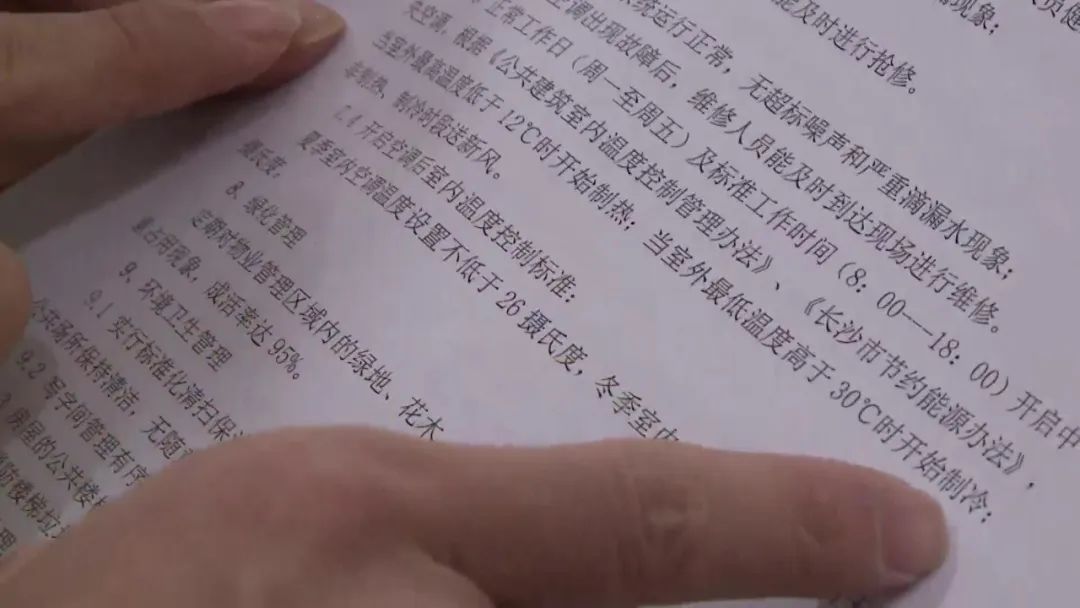 漏现象；
人员能
能及时进行抢修。
系统运行正常，无超标噪声和严重滴漏水现象；
空调出现故障后，维修人员能及时到达现场进行维修。
正常工作日（周一至周五）及标准工作时间（8：00——18：00）开启中
央空调，根据《公共建筑室内温度控制管理办法》、《长沙市节约能源办法》，
当室外最高温度低于12℃时开始制热；当室外最低温度高于30℃时开始制冷；
非制热、制冷时段送新风。
7.4 开启空调后室内温度控制标准：
夏季室内空调温度设置不低于26摄氏度，冬季室内
摄氏度。
8. 绿化管理
定期对物业管理区域内的绿地、花木
重占用现象，成活率达95%。
9. 环境卫生管理
9.1 实行标准化清扫保
公共场所保持清洁，无随
9.2 写字间管理有序
房屋的公共楼梯
消防楼梯垃圾
理